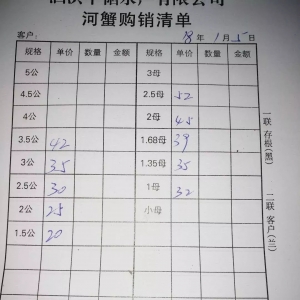 有限公司
河蟹购销清单
客户: 18年1月5日
规格 单价 数量 金额 规格 单价 数量 金额
5公 3母
4.5公 2.5母 52
4公 2母 45
3.5公 42 1.68母 39
3公 35 1.35母 35
2.5公 30 1母 32
2公 25 小母
1.5公 20
一联 存根(黑) 二联 客户(兰)